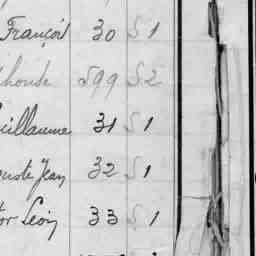 François 30 S 1
lhonse 599 S 2
uillaume 31 S 1
uste Jean 32 S 1
tor Léon 33 S 1